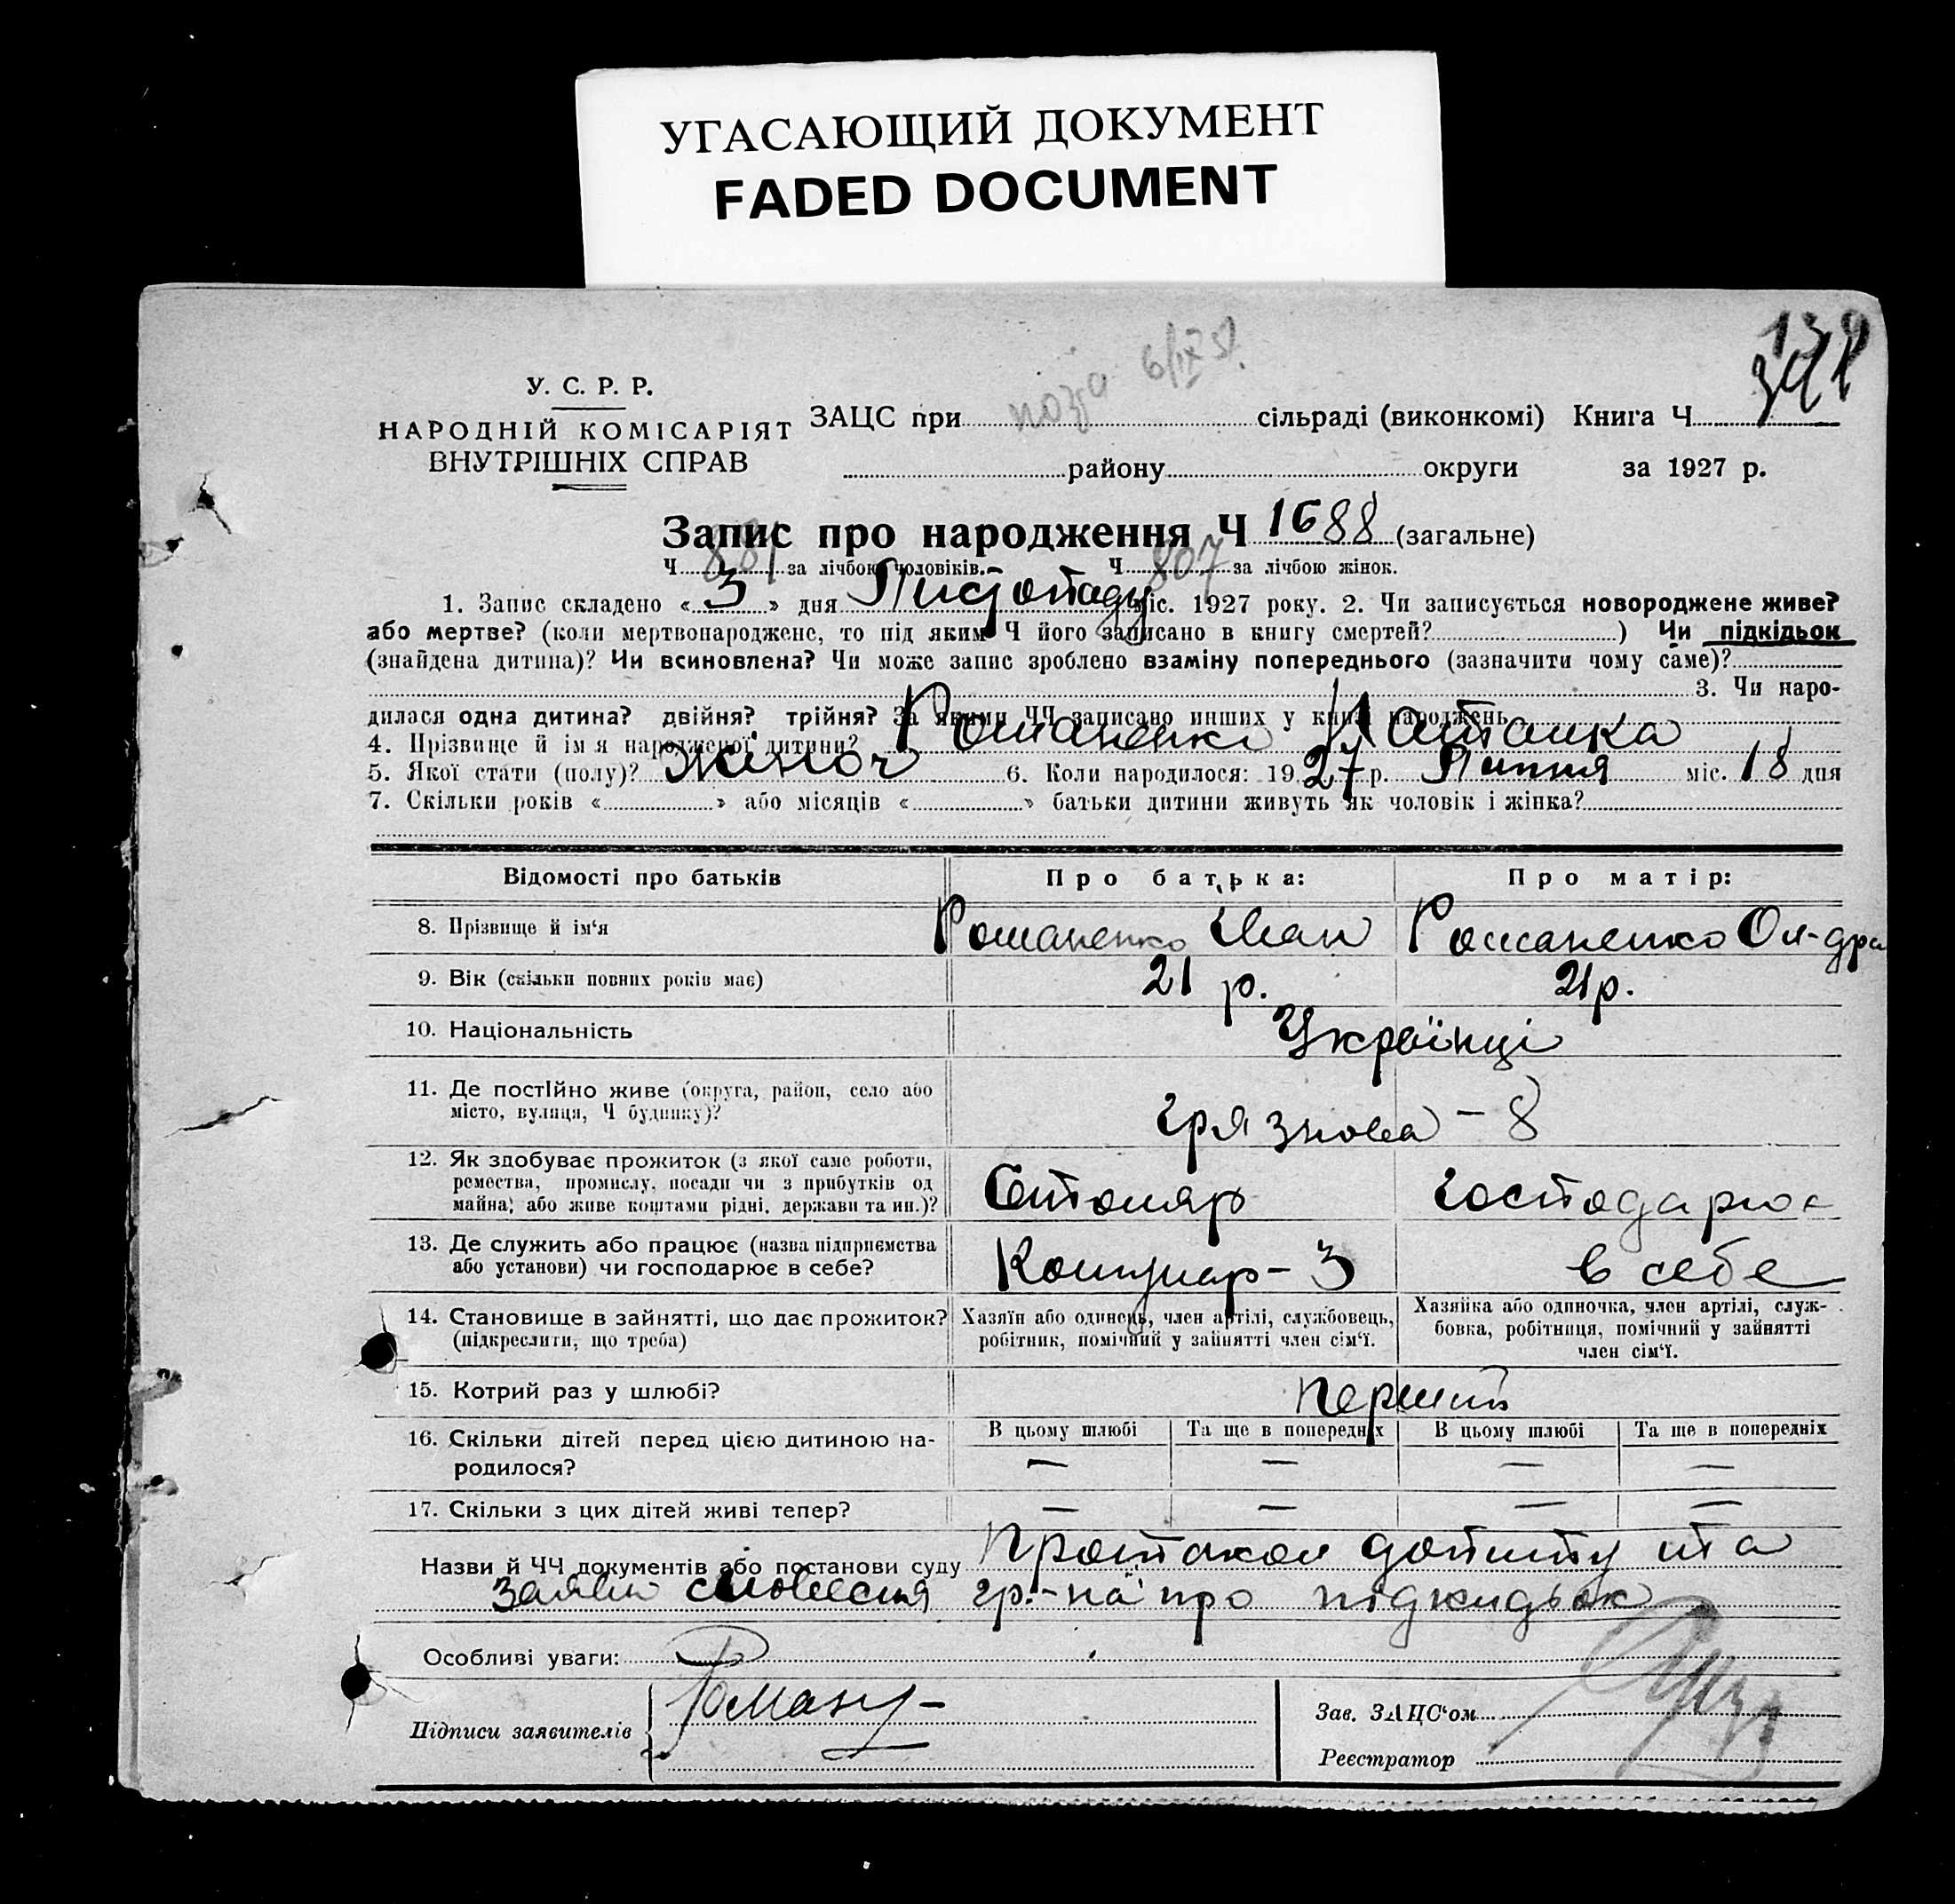 УГАСАЮЩИЙ ДОКУМЕНТ
FADED DOCUMENT
У. С. Р. Р.
НАРОДНІЙ КОМІСАРІЯТ
ВНУТРІШНІХ СПРАВ
ЗАЦС при сільраді (виконкомі) Книга Ч
району округи за 1927 р.
Запис про народження Ч 1688 (загальне)
Ч 881 за лічбою чоловіків. Ч 807 за лічбою жінок.
1. Запис складено « 3 » дня Листопаду міс. 1927 року. 2. Чи записується новороджене живе?
або мертве? (коли мертвонароджене, то під яким Ч його записано в книгу смертей? ) Чи підкідьок
(знайдена дитина)? Чи всиновлена? Чи може запис зроблено взаміну попереднього (зазначити чому саме)?
3. Чи наро-
дилася одна дитина? двійня? трійня? За якими ЧЧ записано инших у книзі народжень
4. Прізвище й ім'я народженої дитини? Романенко Наталка
5. Якої стати (полу)? жіноч 6. Коли народилося: 1927 р. Липня міс. 18 дня
7. Скільки років « » або місяців « » батьки дитини живуть як чоловік і жінка?
Відомості про батьків Про батька: Про матір:
8. Прізвище й ім'я Романенко Іван Романенко Ол-дра
9. Вік (скільки повних років має) 21 р. 21 р.
10. Національність Українці
11. Де постійно живе (округа, район, село або
місто, вулиця, Ч будинку)? Грязнова - 8
12. Як здобуває прожиток (з якої саме роботи,
ремества, промислу, посади чи з прибутків од
майна, або живе коштами рідні, держави та ин.)? Столяр господарює
13. Де служить або працює (назва підприємства
або установи) чи господарює в себе? в себе
14. Становище в зайнятті, що дає прожиток?
(підкреслити, що треба)
Хазяїн або одинець, член артілі, службовець,
робітник, помічний у зайнятті член сім'ї.
Хазяйка або одиночка, член артілі, служ-
бовка, робітниця, помічний у зайнятті
член сім'ї.
15. Котрий раз у шлюбі? перший
16. Скільки дітей перед цією дитиною на-
родилося?
В цьому шлюбі Та ще в попередніх В цьому шлюбі Та ще в попередніх
— — — —
17. Скільки з цих дітей живі тепер? — — — —
Назви й ЧЧ документів або постанови суду Протокол допиту та
заява гр.-на про підкидьок
Особливі уваги:
Підписи заявителів
Зав. ЗАЦС'ом
Реєстратор